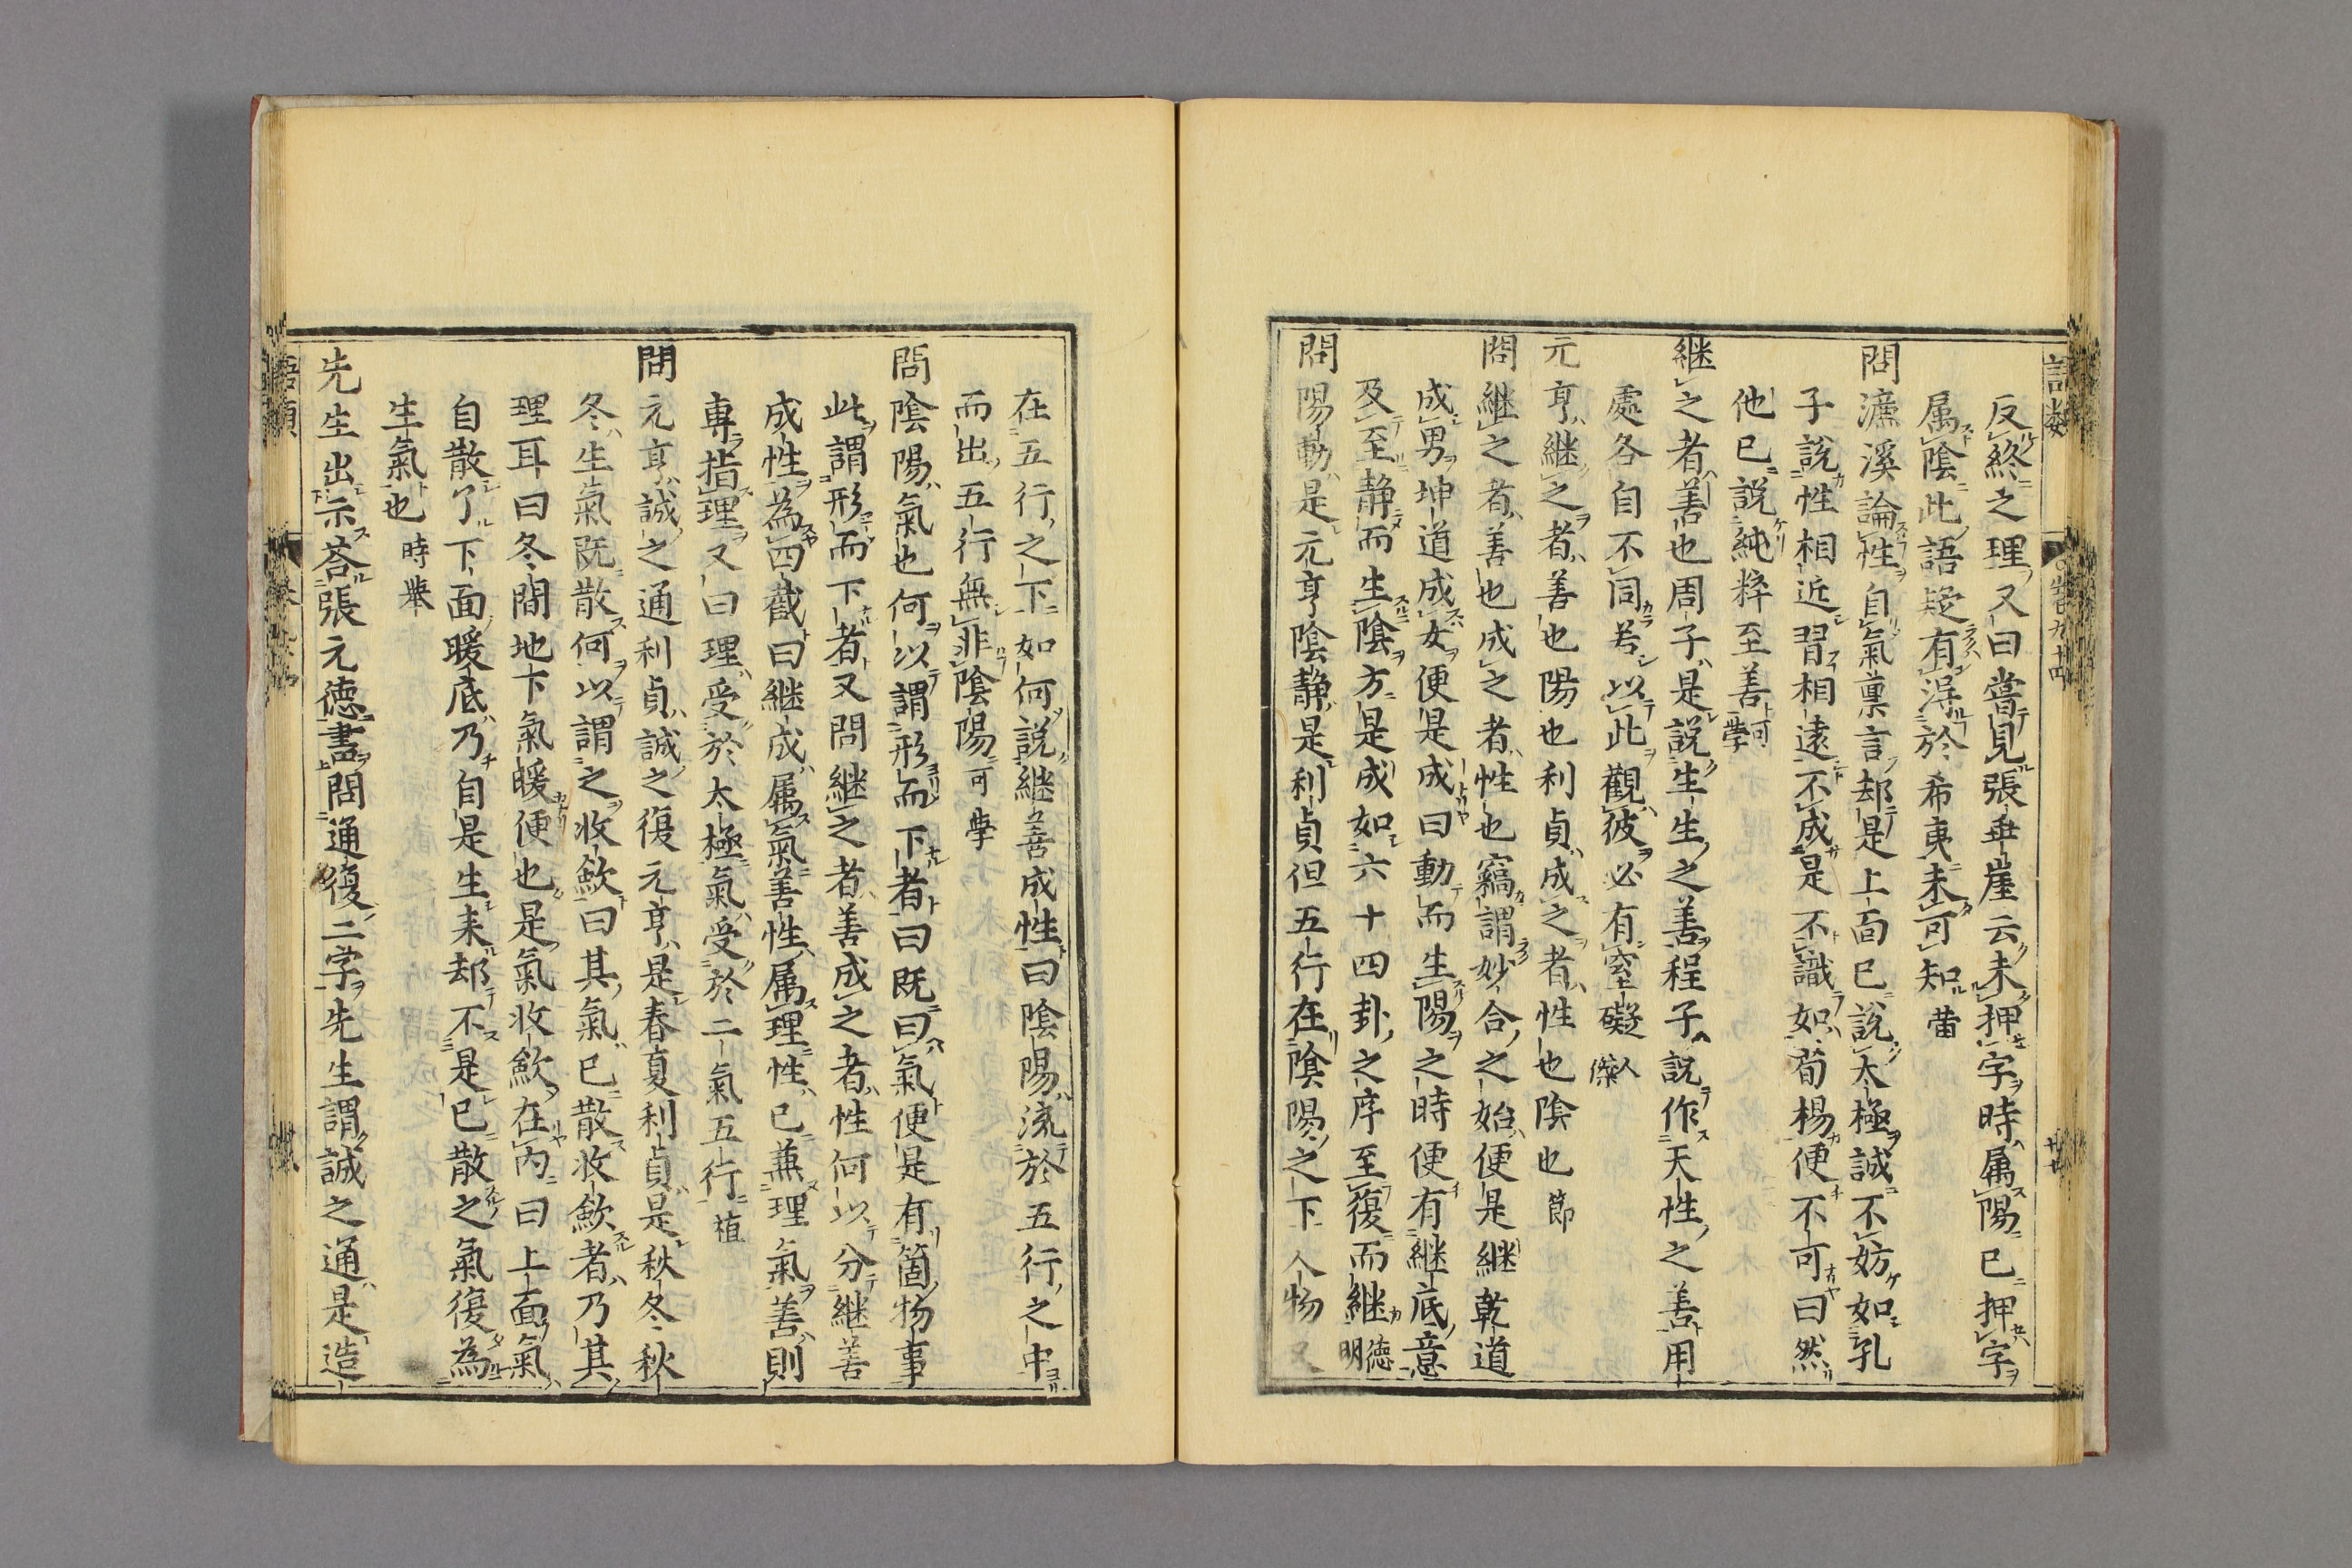 反終之理又曰嘗見張乖崖云未押字時属陽已押字
属陰此語疑有得於希夷未可知 㽞
問濂溪論性自氣稟言却是上面已說太極誠不妨如孔
子說性相近習相遠不成是不識如荀楊便不可曰然
他已說純粹至善 可學
継之者善也周子是說生生之善程子說作天性之善用
處各自不同若以此觀彼必有窒礙 人傑
元亨継之者善也陽也利貞成之者性也陰也 節
問継之者善也成之者性也竊謂妙合之始便是継乾道
成男坤道成女便是成曰動而生陽之時便有継底意
及至静而生陰方是成如六十四卦之序至復而継 德明
問陽動是元亨陰静是利貞但五行在陰陽之下人物又
在五行之下如何說継善成性曰陰陽流於五行之中
而出五行無非陰陽 可學
問陰陽氣也何以謂形而下者曰既曰氣便是有箇物事
此謂形而下者又問継之者善成之者性何以分継善
成性為四截曰継成属氣善性属理性已兼理氣善則
専指理又曰理受於太極氣受於二氣五行 植
問元亨誠之通利貞誠之復元亨是春夏利貞是秋冬秋
冬生氣既散何以謂之收斂曰其氣已散收斂者乃其
理耳曰冬間地下氣暖便也是氣收斂在内曰上面氣
自散了下面暖底乃自是生来却不是已散之氣復為
生氣也 時舉
先生出示荅張元德書問通復二字先生謂誠之通是造
語類